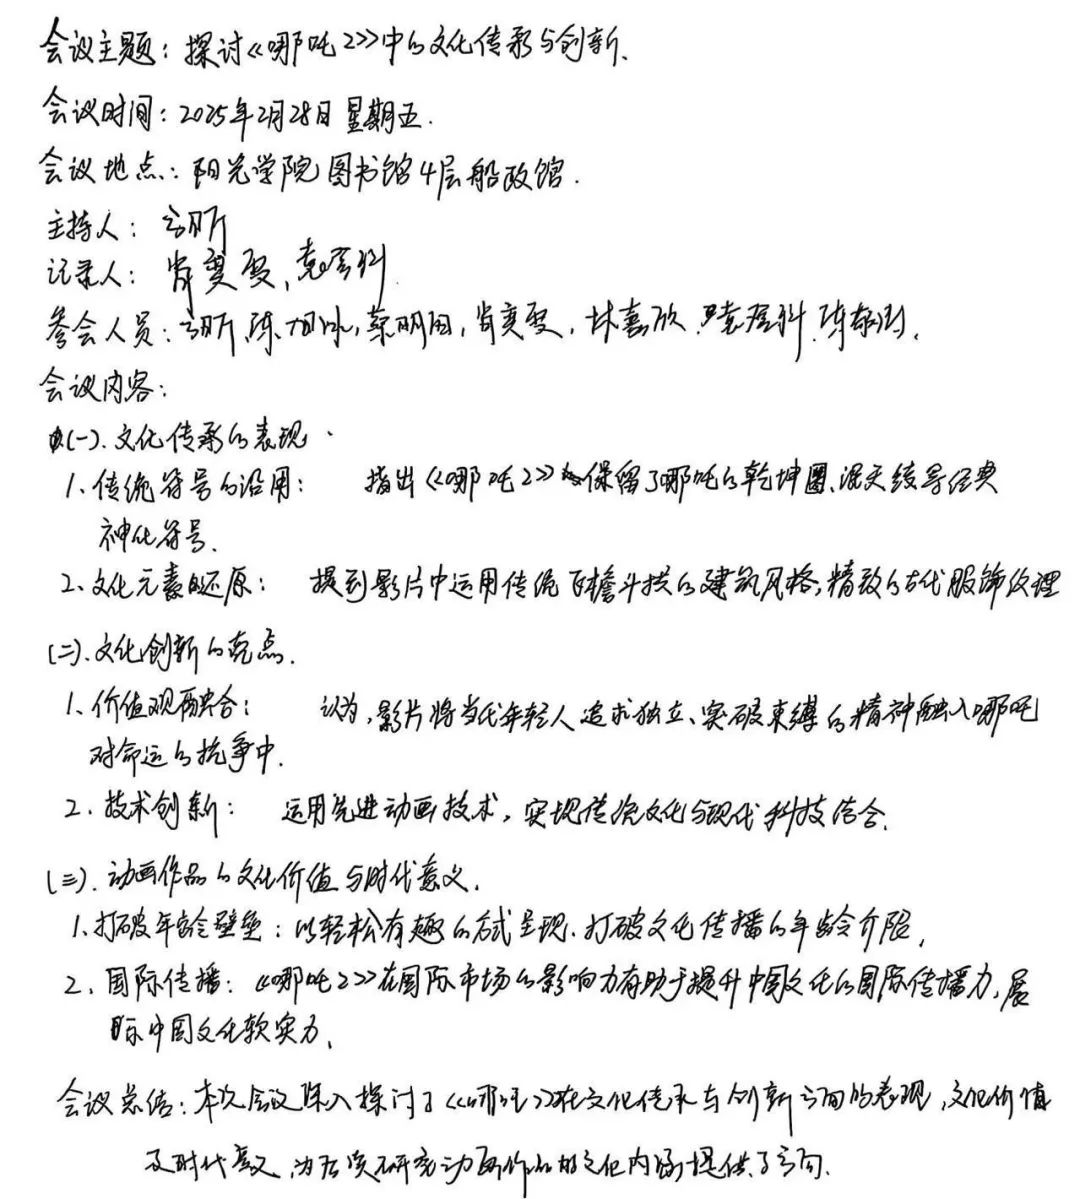 会议主题：探讨《哪吒2》中的文化传承与创新.
会议时间：2025年2月28日星期五.
会议地点：阳光学院图书馆4层船政馆.
主持人：
记录人：肖雯雯、
参会人员：肖雯雯,林嘉欣
会议内容：
(一).文化传承的表现.
1、传统符号的沿用：指出《哪吒2》保留了哪吒的乾坤圈、混天绫等经典
神化符号.
2、文化元素的还原：提到影片中运用传统飞檐斗拱的建筑风格,精致的古代服饰纹理
(二).文化创新的亮点.
1、价值观融合：认为,影片将当代年轻人追求独立、突破束缚的精神融入哪吒
对命运的抗争中.
2.技术创新：运用先进动画技术,实现传统文化与现代科技结合.
(三).动画作品的文化价值与时代意义.
1、打破年龄壁垒：以轻松有趣的方式呈现、打破文化传播的年龄介限,
2、国际传播：《哪吒2》在国际市场的影响力有助于提升中国文化的国际传播力,展
际中国文化软实力,
会议总结：本次会议深入探讨了《哪吒》在文化传承与创新方面的表现,文化价值
及时代意义,为后续研究动画作品的文化内涵提供了方向.